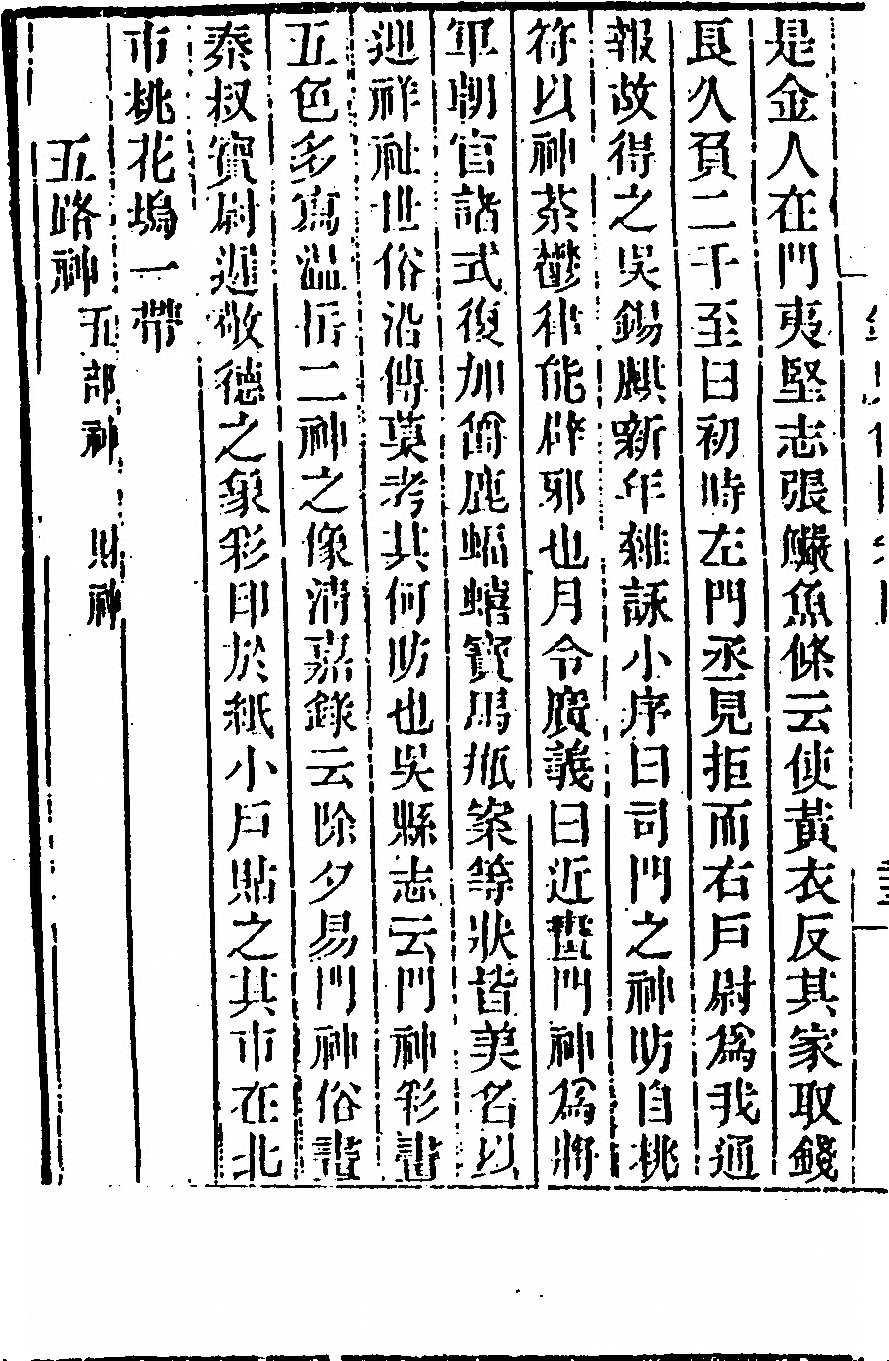 是金人在門夷堅志張鱖魚條云使黃衣反其家取錢
良久負二千至曰初時左門丞見拒而右戶尉為我通
報故得之吳錫麒新年雜詠小序曰司門之神昉自桃
符以神荼鬱律能辟邪也月令廣義曰近畫門神為將
軍朝官諸式復加爵鹿蝠蟢寶馬瓶案等狀皆美名以
迎祥祉世俗沿傳莫考其何昉也吳縣志云門神彩畫
五色多寫溫岳二神之像清嘉錄云除夕易門神俗畫
秦叔寶尉遲敬德之象彩印於紙小戶貼之其市在北
市桃花塢一帶
五路神 五部神 財神